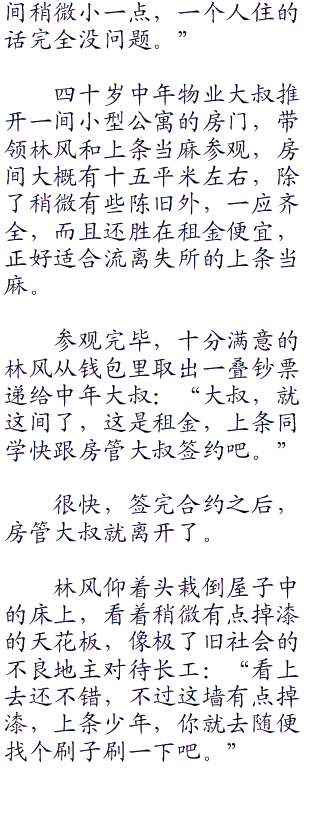 间稍微小一点，一个人住的
话完全没问题。”
四十岁中年物业大叔推
开一间小型公寓的房门，带
领林风和上条当麻参观，房
间大概有十五平米左右，除
了稍微有些陈旧外，一应齐
全，而且还胜在租金便宜，
正好适合流离失所的上条当
麻。
参观完毕，十分满意的
林风从钱包里取出一叠钞票
递给中年大叔：“大叔，就
这间了，这是租金，上条同
学快跟房管大叔签约吧。”
很快，签完合约之后，
房管大叔就离开了。
林风仰着头栽倒屋子中
的床上，看着稍微有点掉漆
的天花板，像极了旧社会的
不良地主对待长工：“看上
去还不错，不过这墙有点掉
漆，上条少年，你就去随便
找个刷子刷一下吧。”